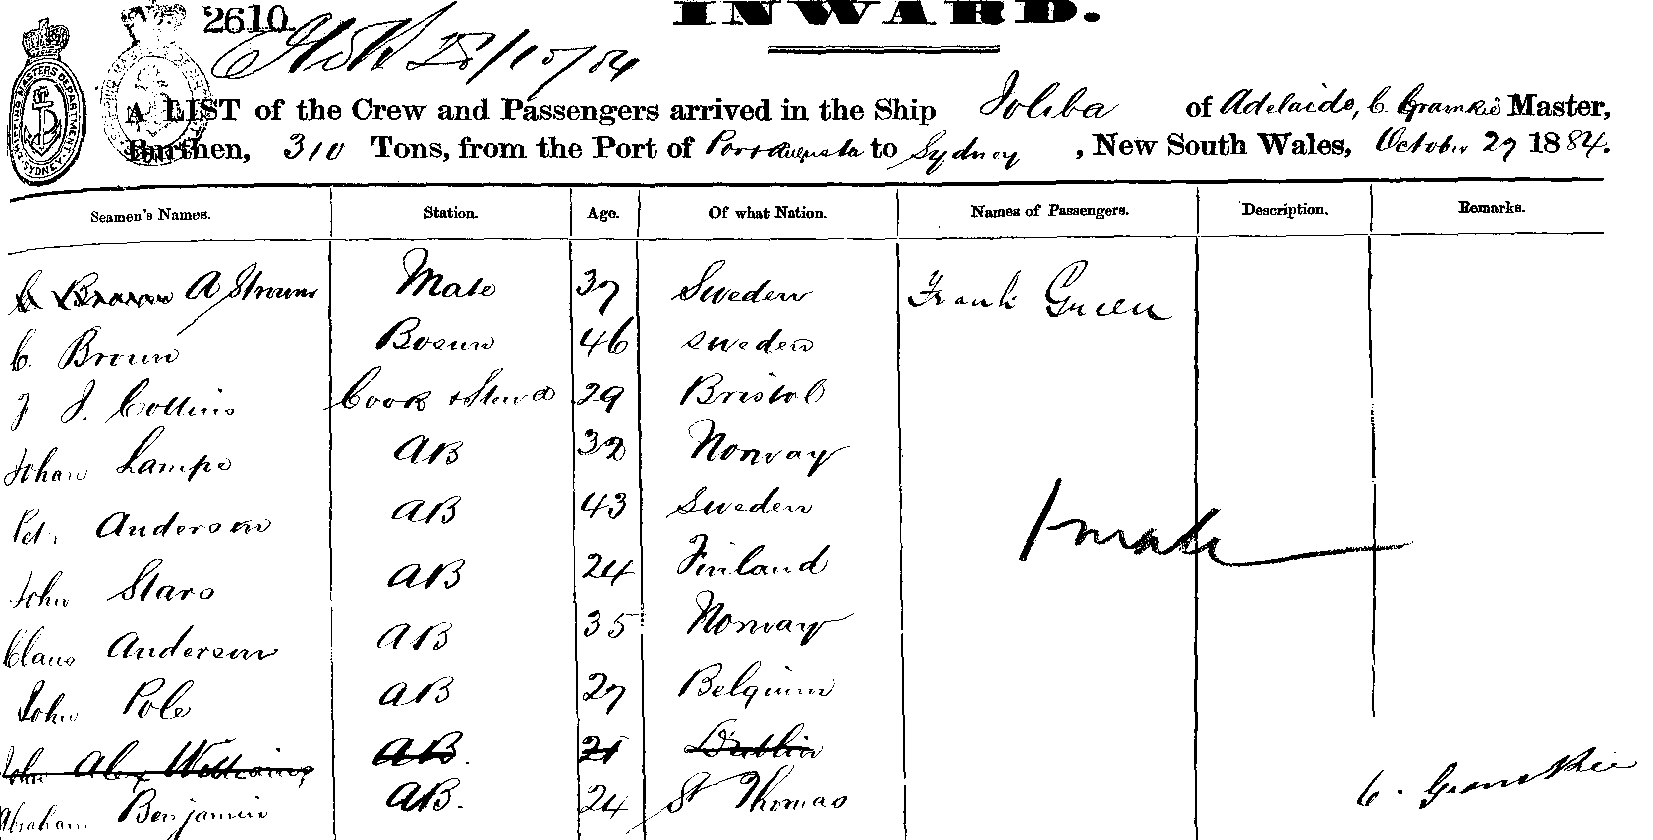 2610.
INWARD.
28/10/84
A LIST of the Crew and Passengers arrived in the Ship Joliba of Adelaide, C. Master,
Burthen, 310 Tons, from the Port of Port Augusta to Sydney, New South Wales, October 27 1884.
Seamen's Names. Station. Age. Of what Nation. Names of Passengers. Description. Remarks.
A Mate 37 Sweden Frank Green
C. Brown Bosun 46 Sweden
J. Collins Cook & Stewd 29 Bristol
Johan Lampe AB 32 Norway
Pet. Anderson AB 43 Sweden
John Stars AB 24 Finland
Claus Anderson AB 35 Norway
John Pole AB 27 Belgium
John Alex Williams AB. 21 Dublin
Abraham Benjamin AB. 24 St Thomas
1 male